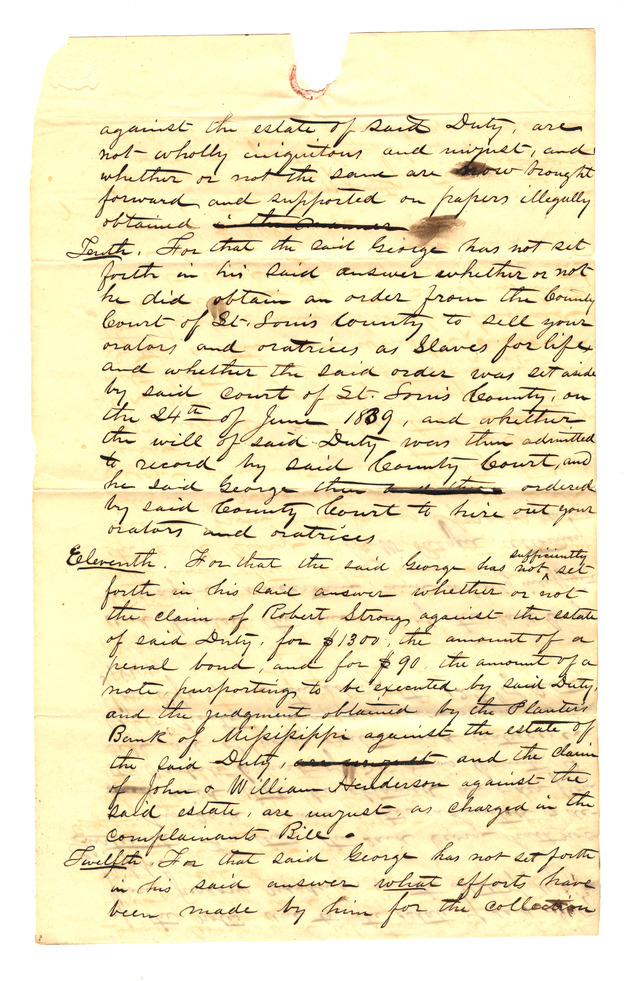 against the estate of said Duty, are
not wholly iniquitous and unjust, and
whether or not the same are now brought
forward and supported on papers illegally
obtained in the manner
Tenth. For that the said George has not set
forth in his said answer whether or not
he did obtain an order from the County
Court of St. Louis County to sell your
orators and oratrices, as Slaves for life,
and whether the said order was set aside
by said Court of St. Louis County, on
the 24th of June 1839, and whether
the will of said Duty was then admitted
to record by said County Court, and
he said George then and there ordered
by said County Court to hire out your
orators and oratrices
Eleventh. For that the said George has sufficiently not set
forth in his said answer whether or not
the claim of Robert Strong against the estate
of said Duty, for $1300, the amount of a
penal bond, and for $90. the amount of a
note purporting to be executed by said Duty,
and the judgment obtained by the Planters
Bank of Missisippi against the estate of
the said Duty, are unjust and the claim
of John & William Henderson against the
said estate, are unjust, as charged in the
complainants Bill.
Twelfth. For that said George has not set forth
in his said answer what efforts have
been made by him for the collection